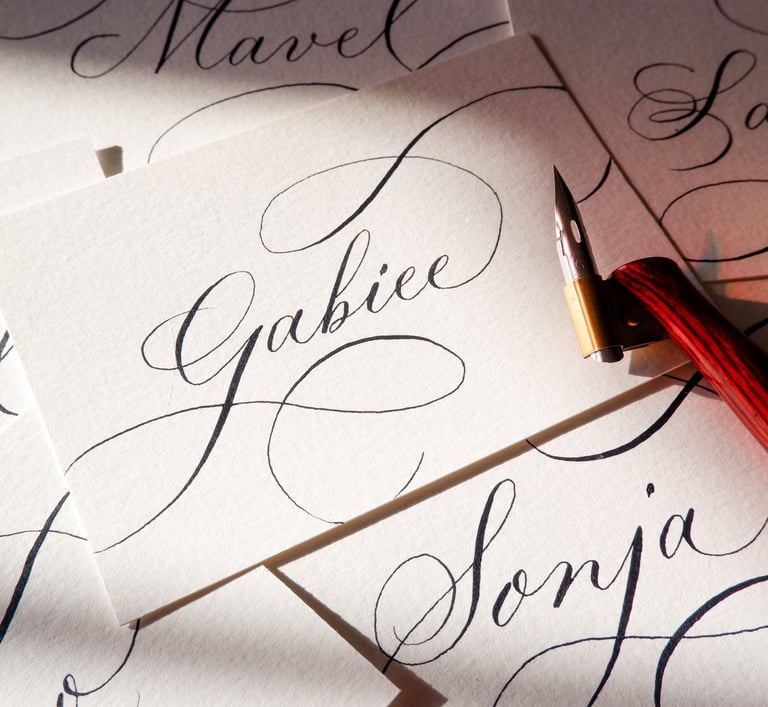 Mavel
Gabiee
Sonja